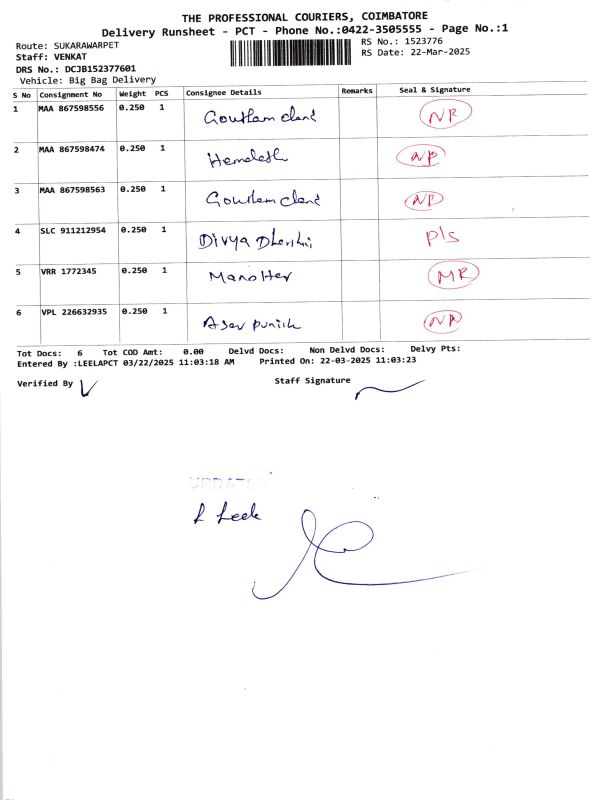 THE PROFESSIONAL COURIERS, COIMBATORE
Delivery Runsheet - PCT - Phone No.:0422-3505555 - Page No.:1
Route: SUKARAWARPET RS No.: 1523776
Staff: VENKAT RS Date: 22-Mar-2025
DRS No.: DCJB152377601
Vehicle: Big Bag Delivery
S No Consignment No Weight PCS Consignee Details Remarks Seal & Signature
1 MAA 867598556 0.250 1 Goutham Chand NR
2 MAA 867598474 0.250 1 NR
3 MAA 867598563 0.250 1 Goutham Chand NR
4 SLC 911212954 0.250 1 Divya Dharshni P/s
5 VRR 1772345 0.250 1 MR
6 VPL 226632935 0.250 1 NR
Tot Docs: 6 Tot COD Amt: 0.00 Delvd Docs: Non Delvd Docs: Delvy Pts:
Entered By :LEELAPCT 03/22/2025 11:03:18 AM Printed On: 22-03-2025 11:03:23
Verified By Staff Signature
UPDATED